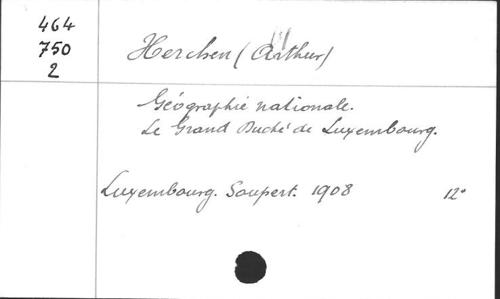 464
750
2
Herchen (Arthur)
Géographie nationale.
Le Grand Duché de Luxembourg.
Luxembourg. Soupert. 1908 12°